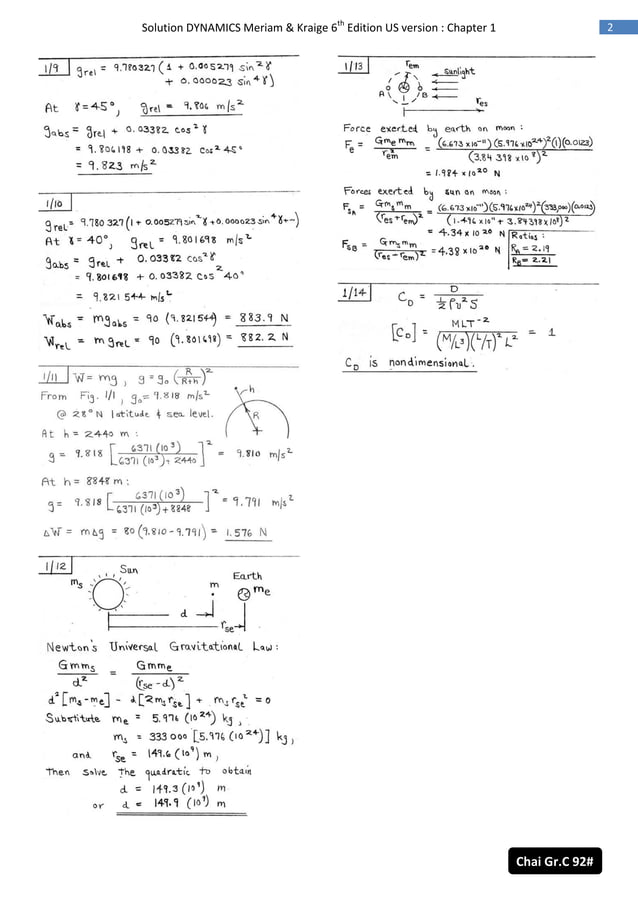 Solution DYNAMICS Meriam & Kraige 6th Edition US version : Chapter 1
2
1/9
g_rel = 9.780327 (1 + 0.005279 sin²γ
+ 0.000023 sin⁴γ)
At γ = 45°, g_rel = 9.806 m/s²
g_abs = g_rel + 0.03382 cos²γ
= 9.806198 + 0.03382 cos²45°
= 9.823 m/s²
1/10
g_rel = 9.780 327 (1 + 0.005279 sin²γ + 0.000023 sin⁴γ + --)
At γ = 40°, g_rel = 9.801698 m/s²
g_abs = g_rel + 0.03382 cos²γ
= 9.801698 + 0.03382 cos²40°
= 9.821 544 m/s²
W_abs = mg_abs = 90 (9.821544) = 883.9 N
W_rel = mg_rel = 90 (9.801698) = 882.2 N
1/11 W = mg, g = g₀ (R/(R+h))²
From Fig. 1/1, g₀ = 9.818 m/s²
@ 28° N latitude & sea level.
h
R
At h = 2440 m :
g = 9.818 [6371(10³) / (6371(10³) + 2440)]² = 9.810 m/s²
At h = 8848 m :
g = 9.818 [6371(10³) / (6371(10³) + 8848)]² = 9.791 m/s²
ΔW = mΔg = 80 (9.810 - 9.791) = 1.576 N
1/12
Sun
Earth
m_s
m
m_e
d
r_se
Newton's Universal Gravitational Law :
Gmm_s / d² = Gmm_e / (r_se - d)²
d² [m_s - m_e] - d [2m_s r_se] + m_s r_se² = 0
Substitute m_e = 5.976 (10²⁴) kg,
m_s = 333 000 [5.976 (10²⁴)] kg,
and r_se = 149.6 (10⁹) m,
Then solve the quadratic to obtain
d = 149.3 (10⁹) m
or d = 149.9 (10⁹) m
1/13
r_em
sunlight
A
B
r_es
Force exerted by earth on moon :
F_e = Gm_e m_m / r_em² = (6.673×10⁻¹¹)(5.976×10²⁴)²(1)(0.0123) / (3.84 398 ×10⁸)²
= 1.984 × 10²⁰ N
Forces exerted by sun on moon :
F_sA = Gm_s m_m / (r_es + r_em)² = (6.673×10⁻¹¹)(5.976×10²⁴)²(333,000)(0.0123) / (1.496 ×10¹¹ + 3.84398×10⁸)²
= 4.34 × 10²⁰ N
F_sB = Gm_s m_m / (r_es - r_em)² = 4.38 × 10²⁰ N
Ratios :
R_A = 2.19
R_B = 2.21
1/14
C_D = D / (½ρv²S)
[C_D] = MLT⁻² / ((M/L³)(L/T)² L²) = 1
C_D is nondimensional.
Chai Gr.C 92#